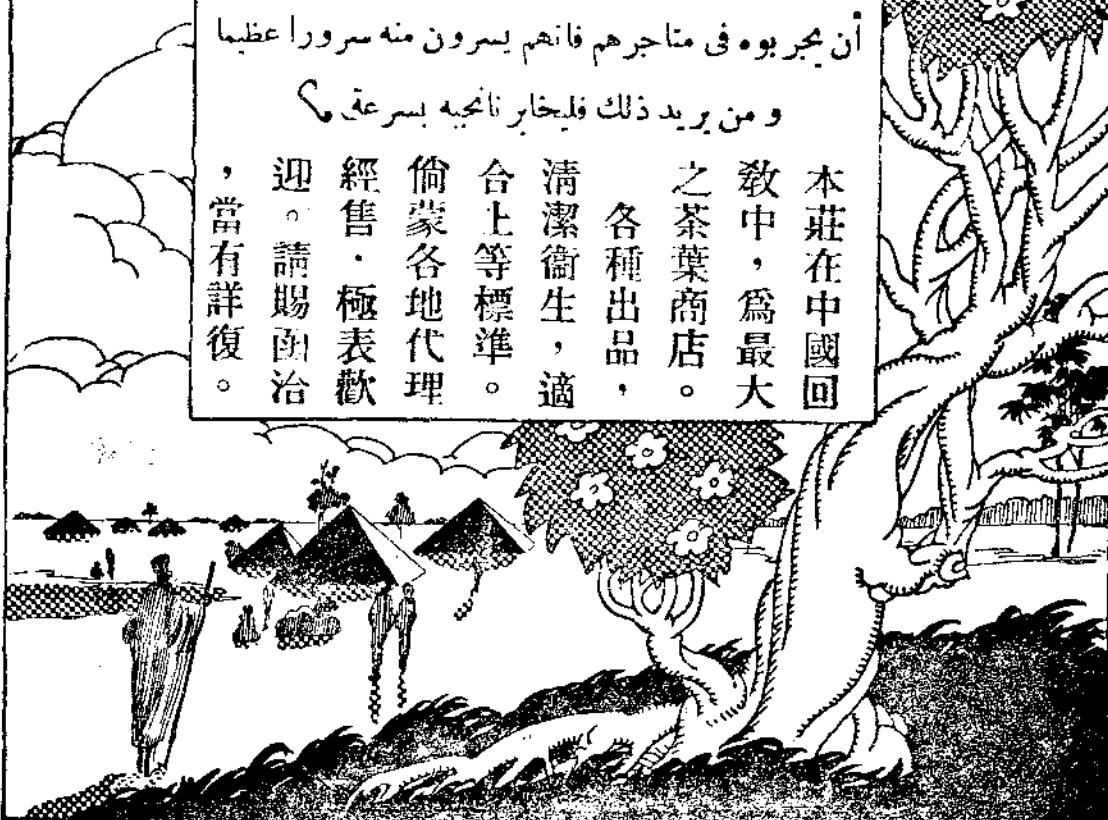 أن يجربوه فى متاجرهم فانهم يسرون منه سرورا عظيما
و من يريد ذلك فليخابر نانجيه بسرعة
本莊在中國回
敎中，爲最大
之茶葉商店。
各種出品，
淸潔衞生，適
合上等標準。
倘蒙各地代理
經售．極表歡
迎。請賜函洽
，當有詳復。